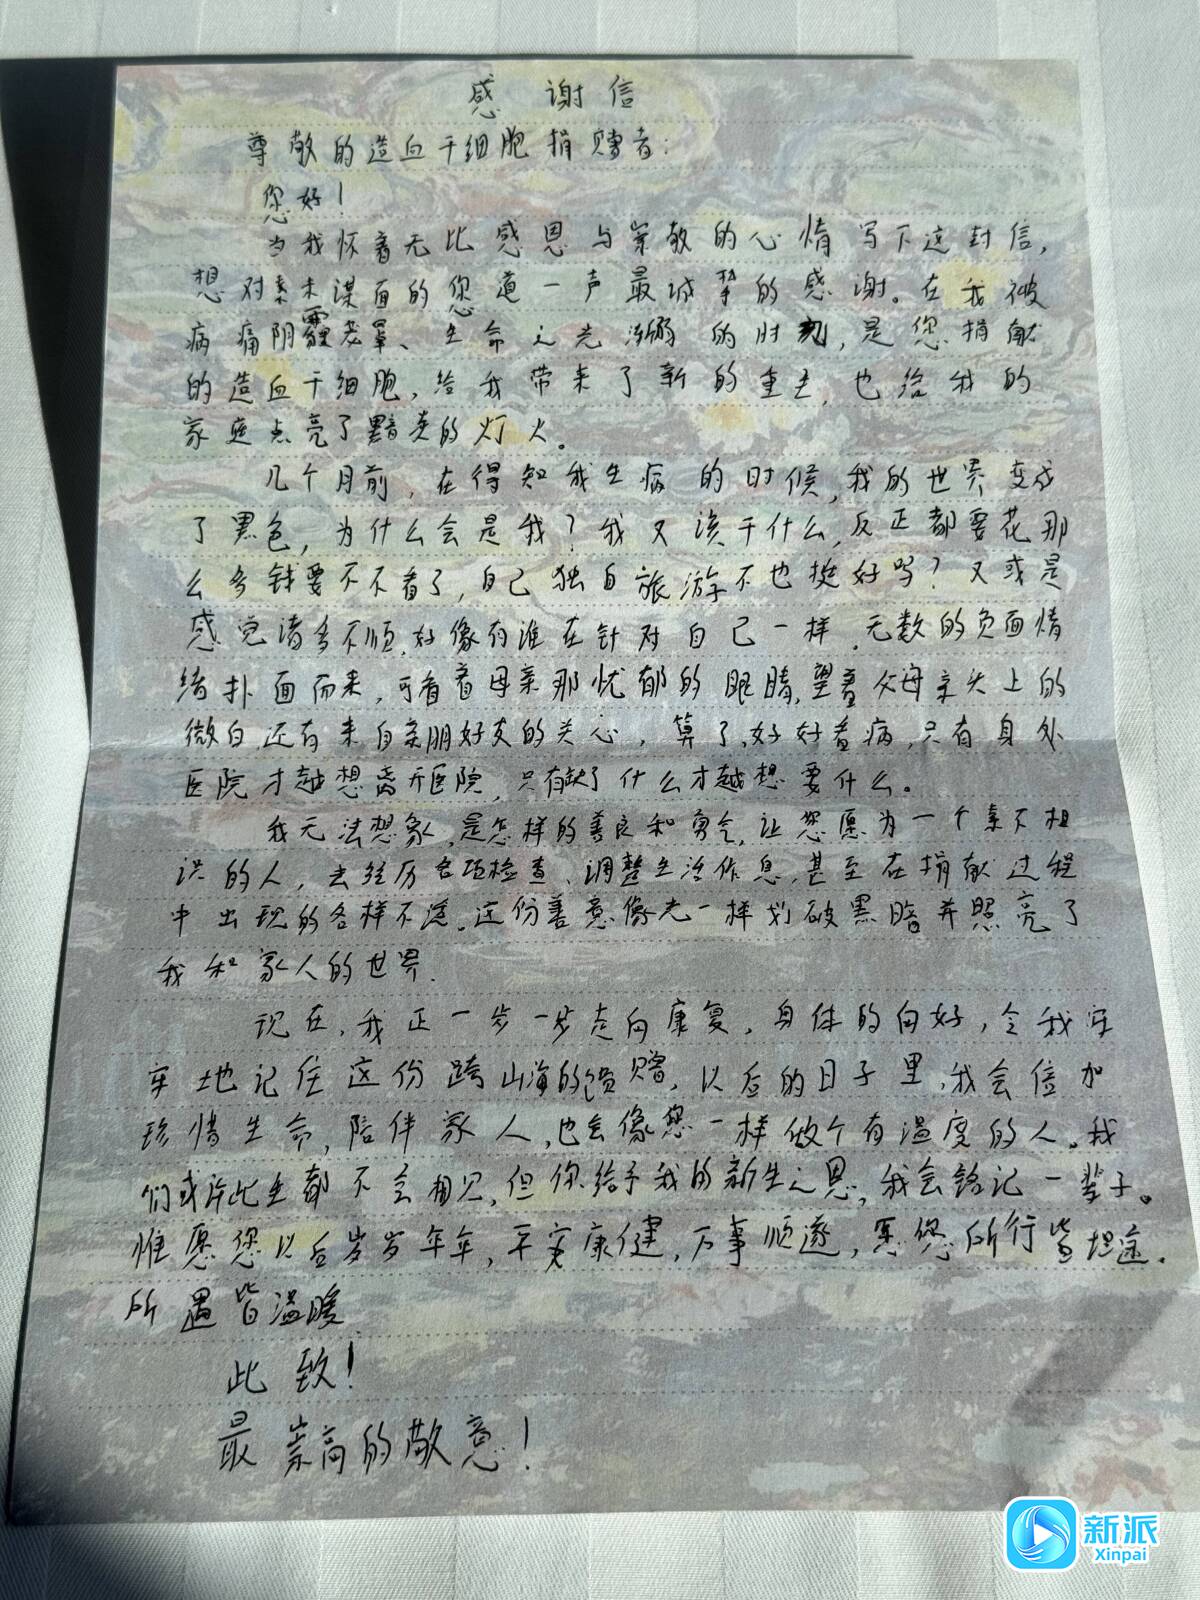 感谢信
尊敬的造血干细胞捐赠者：
您好！
当我怀着无比感恩与崇敬的心情写下这封信，
想对素未谋面的您道一声最诚挚的感谢。在我被
病痛阴霾笼罩、生命之光渐弱的时刻，是您捐献
的造血干细胞，给我带来了新的重生，也给我的
家庭点亮了黯光的灯火。
几个月前，在得知我生病的时候，我的世界变成
了黑色，为什么会是我？我又该干什么，反正都要花那
么多钱要不不看了，自己独自旅游不也挺好吗？又或是
感觉诸多不顺，好像有谁在针对自己一样。无数的负面情
绪扑面而来，可看着母亲那忧郁的眼睛，望着父母亲头上的
微白还有来自亲朋好友的关心，算了，好好看病，只有身处
医院才越想离开医院，只有缺了什么才越想要什么。
我无法想象，是怎样的善良和勇气，让您愿为一个素不相
识的人，去经历各项检查、调整生活作息，甚至在捐献过程
中出现的各样不适。这份善意像光一样划破黑暗并照亮了
我和家人的世界。
现在，我正一步一步走向康复，身体的向好，令我牢
牢地记住这份跨山海的馈赠，以后的日子里，我会倍加
珍惜生命，陪伴家人，也会像您一样做个有温度的人。我
们或许此生都不会相见，但你给予我的新生之恩，我会铭记一辈子。
惟愿您以后岁岁年年，平安康健，万事顺遂，愿您所行皆坦途，
所遇皆温暖
此致！
最崇高的敬意！
新派
Xinpai